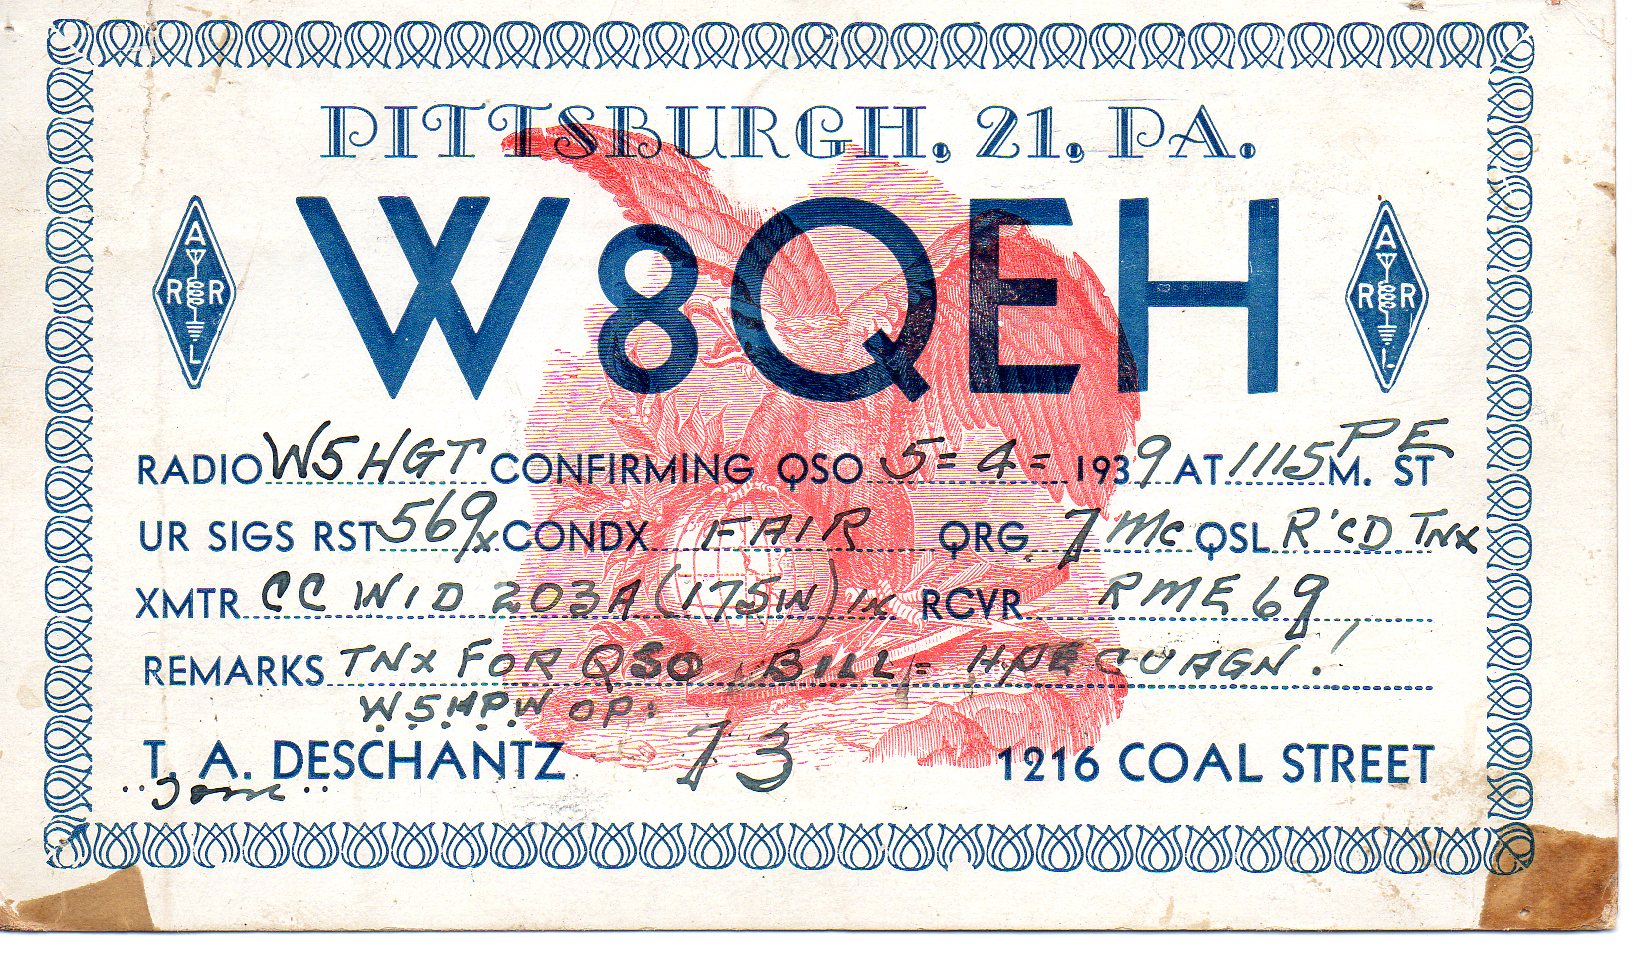 PITTSBURGH, 21, PA.
W8QEH
A R R L
A R R L
RADIO W5HGT CONFIRMING QSO 5-4-1939 AT 1115 P M. E ST
UR SIGS RST 569x CONDX FAIR QRG 7 Mc QSL R'CD TNX
XMTR CC WID 203A (175IN) IN RCVR RME 69
REMARKS TNX FOR QSO BILL = HPE CU AGN!
W5HPW OP:
T. A. DESCHANTZ 73 1216 COAL STREET
"Tom"